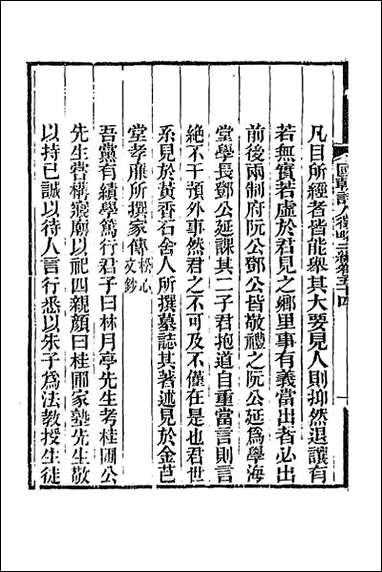 國朝詩人徵略二編卷五十四
凡目所經者皆能舉其大要見人則抑然退讓有
若無實若虛於君見之鄉里事有義當出者必出
前後兩制府阮公鄧公皆敬禮之阮公延為學海
堂學長鄧公延課其二子君抱道自重當言則言
絕不干預外事然君之不可及不僅在是也君世
系見於黃香石舍人所撰墓誌其著述見於金芑
堂孝廉所撰家傳松心文鈔
吾黨有績學篤行君子曰林月亭先生考桂圃公
先生嘗構寢廟以祀四親顏曰桂圃家塾先生敬
以持己誠以待人言行悉以朱子為法教授生徒